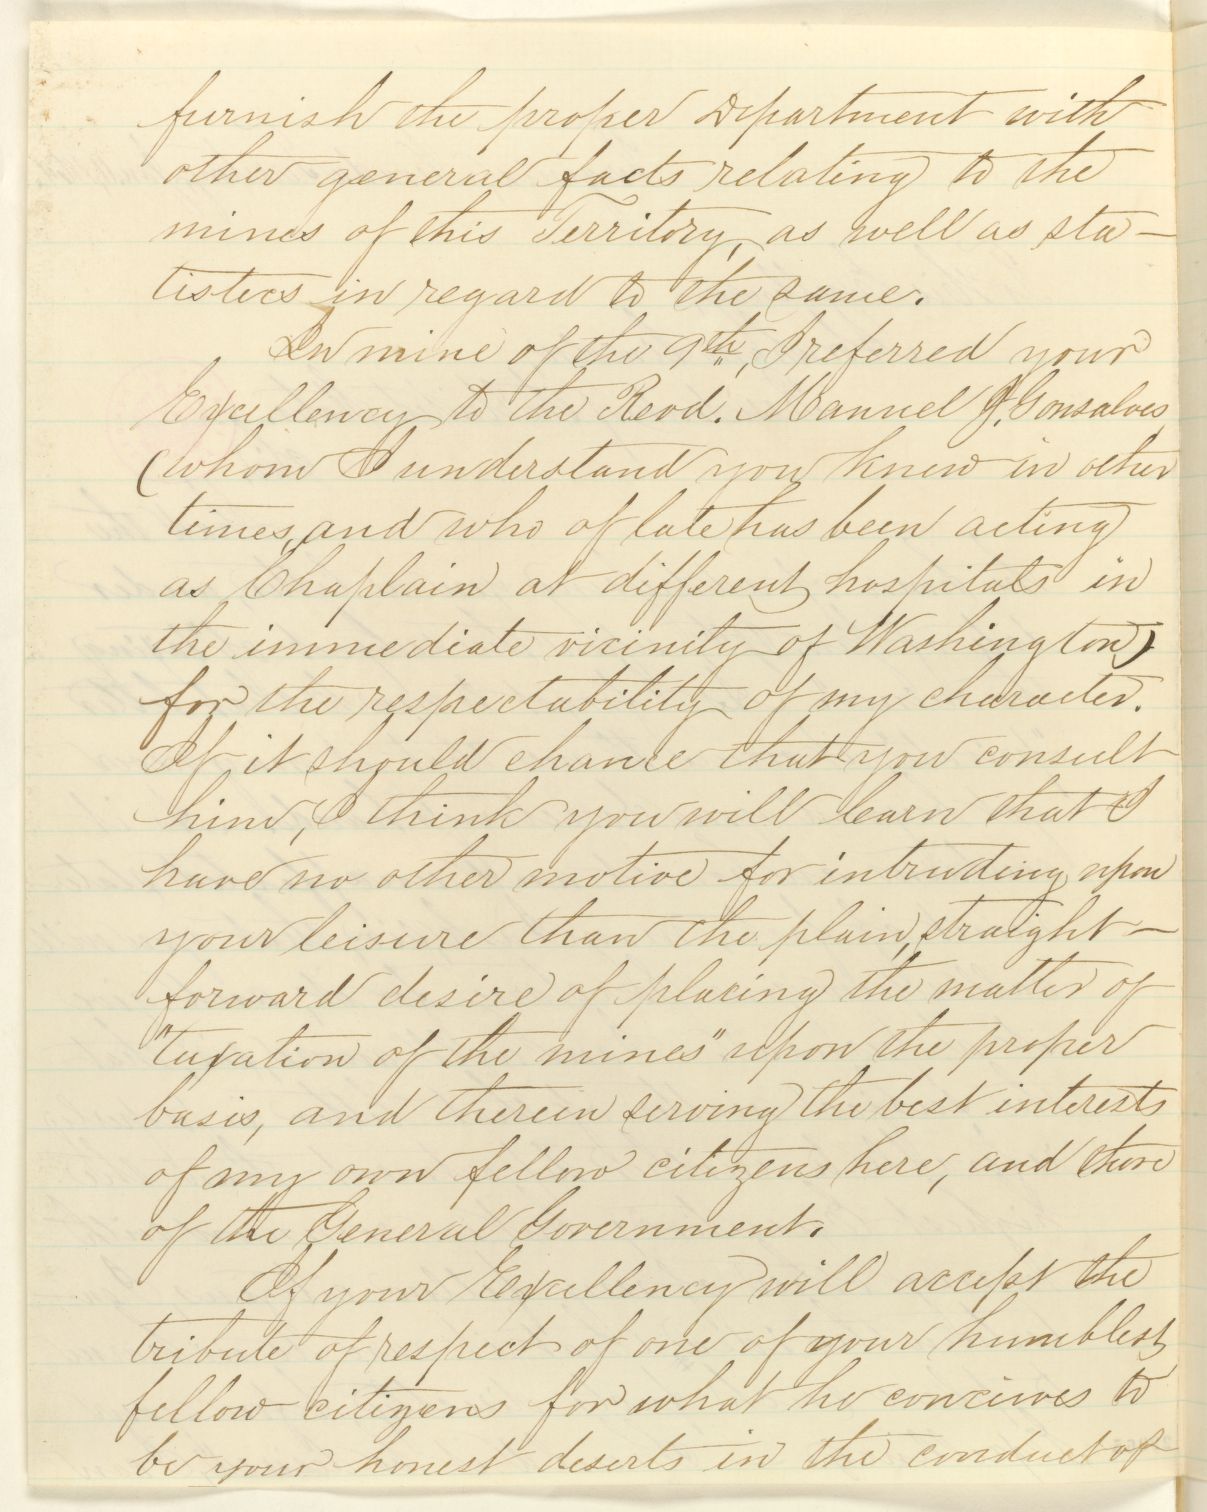 furnish the proper Department with
other general facts relating to the
mines of this Territory, as well as sta-
tistics in regard to the same.
In mine of the 9th, I referred your
Excellency to the Revd. Manuel J. Gonsalves
(whom I understand you knew in other
times, and who of late has been acting
as Chaplain at different hospitals in
the immediate vicinity of Washington)
for the respectability of my character.
If it should chance that you consult
him, I think you will learn that I
have no other motive for intruding upon
your leisure than the plain, straight-
forward desire of placing the matter of
"taxation of the mines" upon the proper
basis, and therein serving the best interests
of my own fellow citizens here, and those
of the General Government.
If your Excellency will accept the
tribute of respect of one of your humblest
fellow citizens for what he conceives to
be your honest deserts in the conduct of